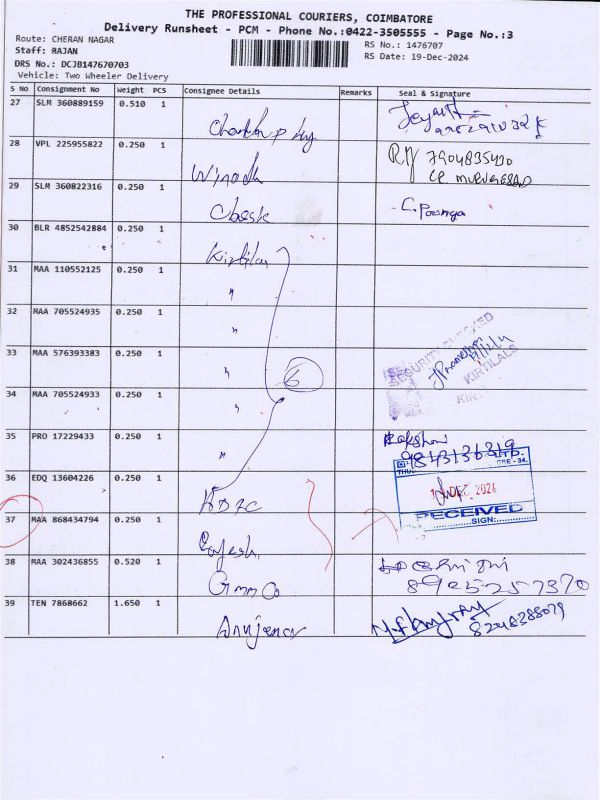 THE PROFESSIONAL COURIERS, COIMBATORE
Delivery Runsheet - PCM - Phone No.:0422-3505555 - Page No.:3
Route: CHERAN NAGAR
Staff: RAJAN
DRS No.: DCJB147670703
Vehicle: Two Wheeler Delivery
RS No.: 1476707
RS Date: 19-Dec-2024
S No Consignment No Weight PCS Consignee Details Remarks Seal & Signature
27 SLM 360889159 0.510 1
28 VPL 225955822 0.250 1 7904835410
29 SLM 360822316 0.250 1 C. Poonga
30 BLR 4852542884 0.250 1 Kirtilal
31 MAA 110552125 0.250 1 "
32 MAA 705524935 0.250 1 "
33 MAA 576393383 0.250 1 "
6
SECURITY CHECKED
KIRTILALS
34 MAA 705524933 0.250 1 "
35 PRO 17229433 0.250 1 "
9843136319
36 EDQ 13604226 0.250 1 HDFC
DEC 2024
RECEIVED
SIGN:
37 MAA 868434794 0.250 1 Rajesh
38 MAA 302436855 0.520 1
8925257370
39 TEN 7868662 1.650 1
8248388079